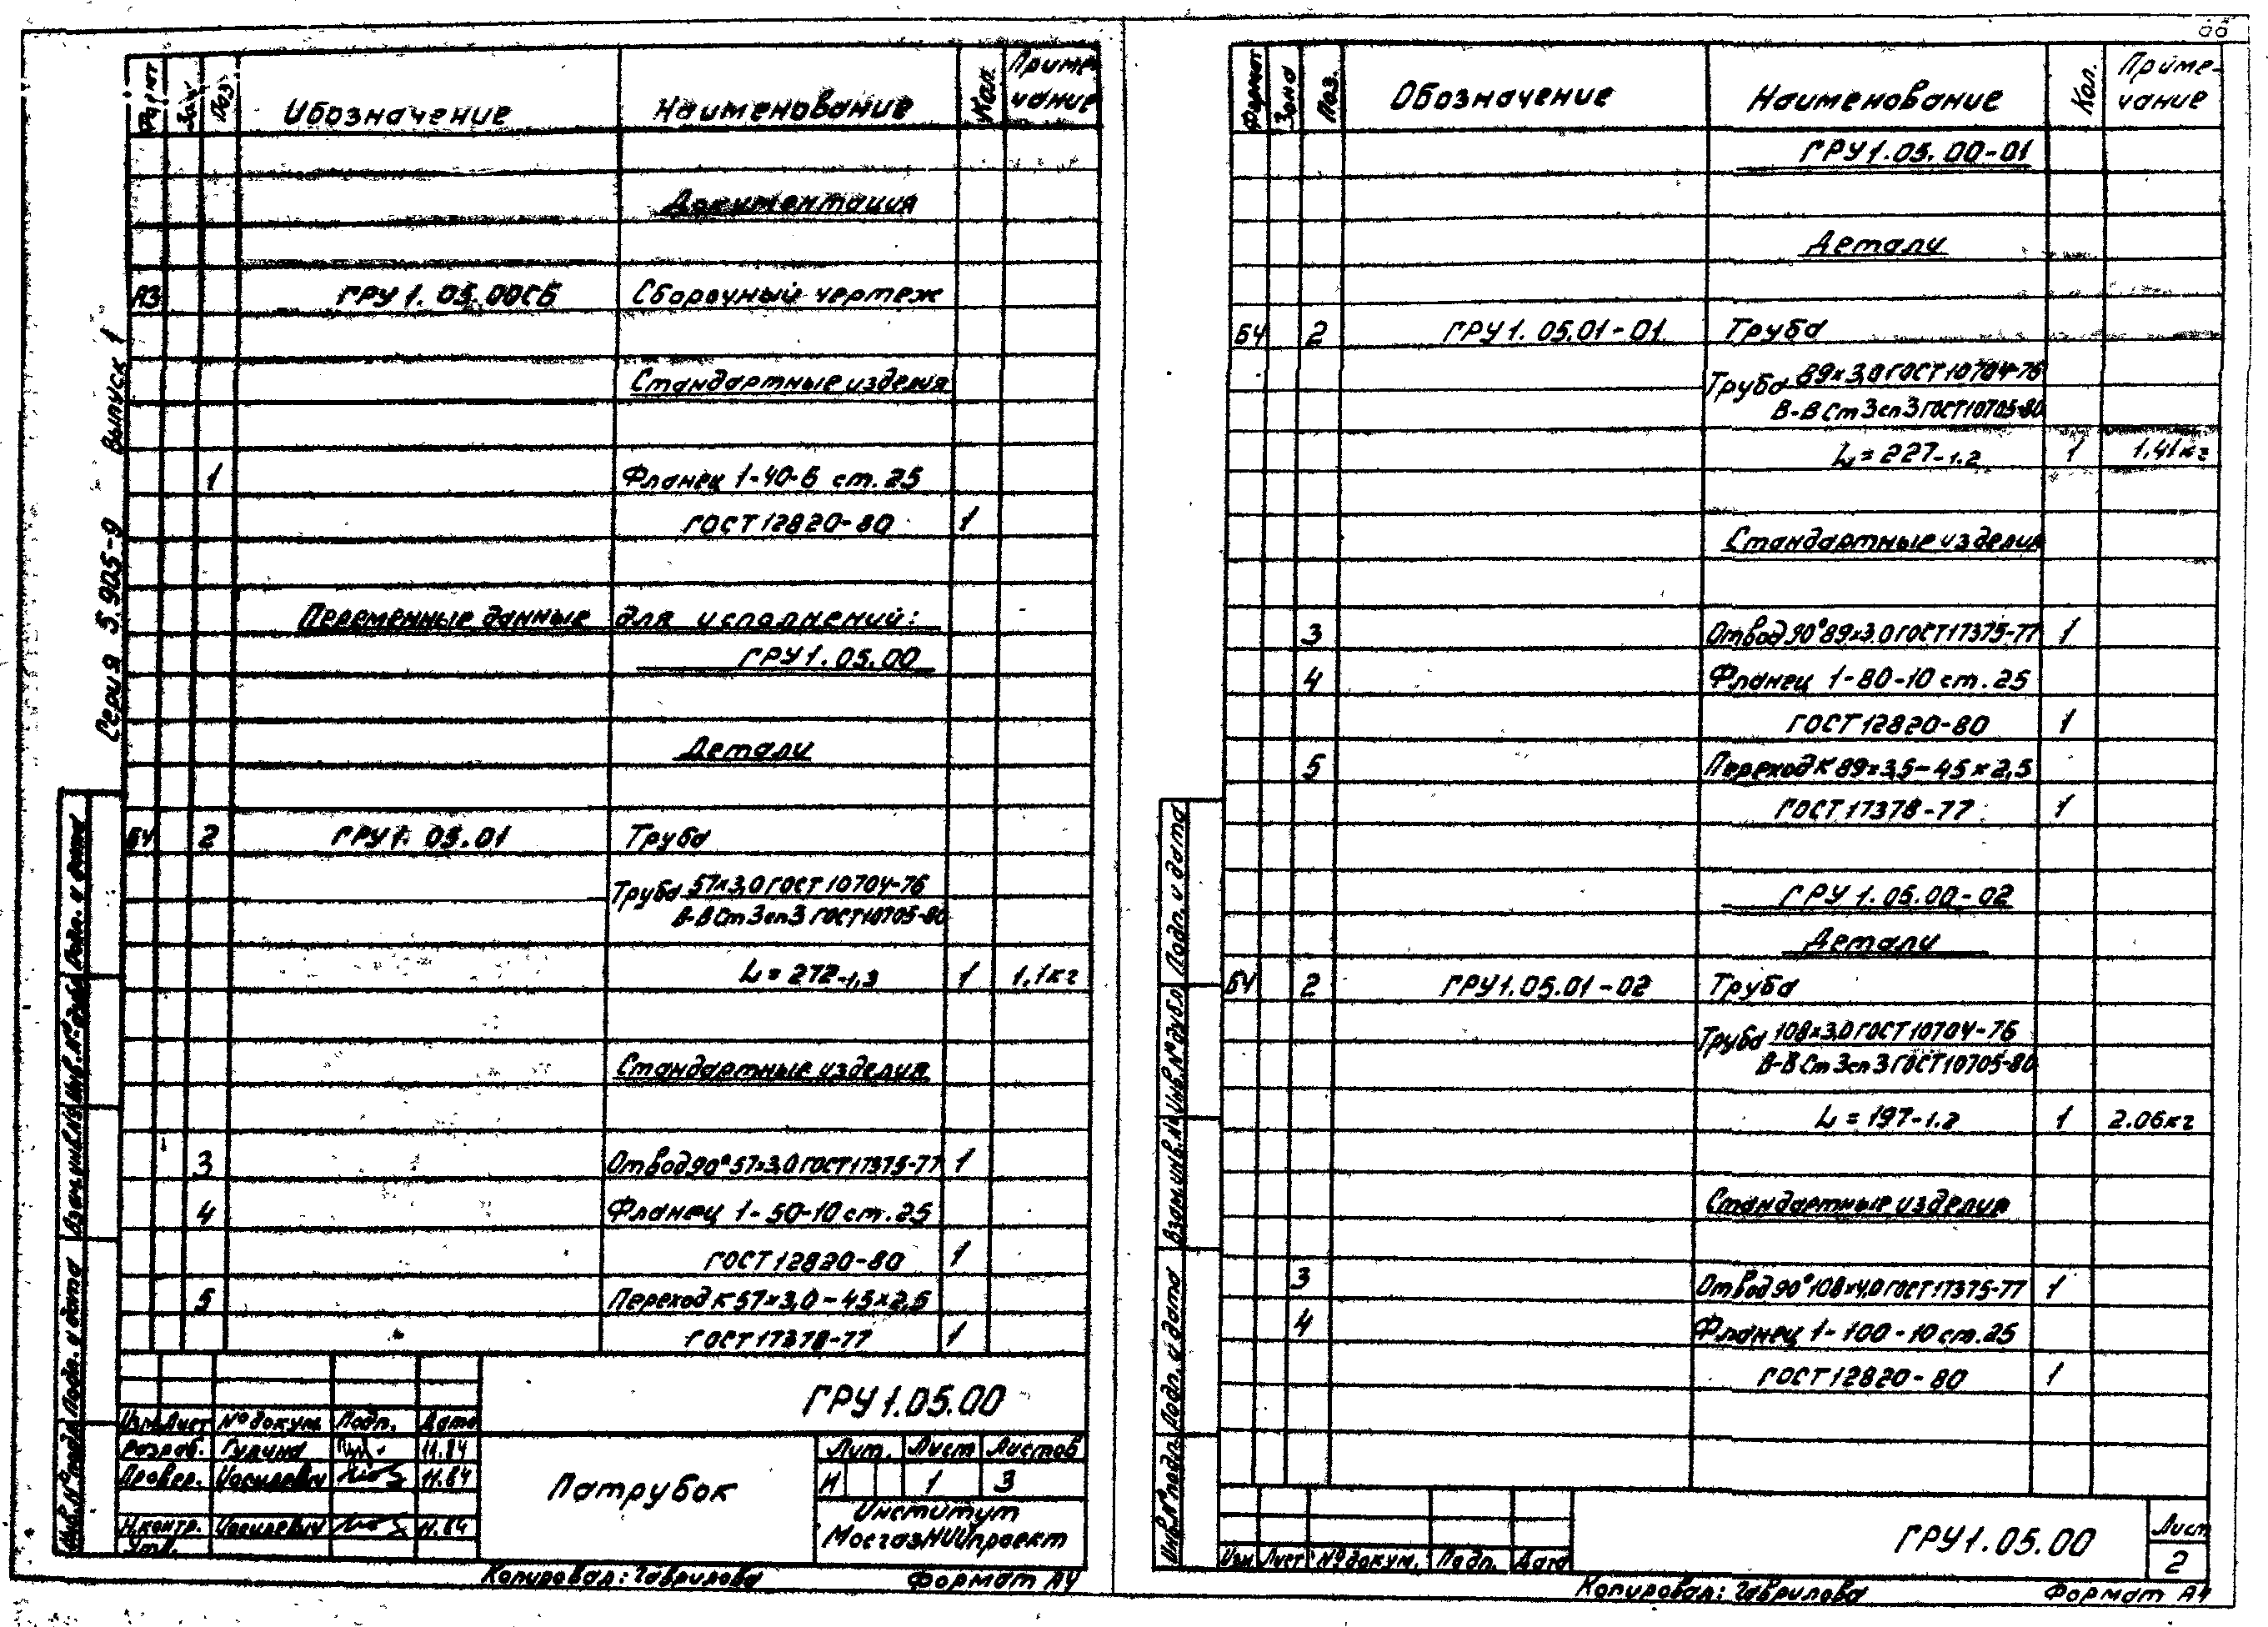 Формат Зона Поз. Обозначение Наименование Кол. Приме-
чание
Документация
А3 ГРУ 1. 05. 00СБ Сборочный чертеж
Стандартные изделия
1 Фланец 1-40-6 ст. 25
ГОСТ 12820-80 1
Переменные данные для исполнений:
ГРУ 1. 05. 00
Детали
БЧ 2 ГРУ 1. 05. 01 Труба
Труба 57×3,0 ГОСТ 10704-76
В-В Ст 3 сп 3 ГОСТ 10705-80
L = 272-1,3 1 1,1 кг
Стандартные изделия
3 Отвод 90° 57×3,0 ГОСТ 17375-77 1
4 Фланец 1-50-10 ст. 25
ГОСТ 12820-80 1
5 Переход К 57×3,0-45×2,5
ГОСТ 17378-77 1
Серия 5.905-9 Выпуск 1
Инв. № подл. Подп. и дата Взам. инв. № Инв. № дубл. Подп. и дата
ГРУ 1. 05. 00
Изм. Лист № докум. Подп. Дата
Разраб. Гурина 11.84
Провер. Иосилевич 11.84
Н.контр. Иосилевич 11.84
Утв.
Патрубок
Лит. Лист Листов
И 1 3
Институт
МосгазНИИпроект
Копировал: Гаврилова Формат А4
Формат Зона Поз. Обозначение Наименование Кол. Приме-
чание
ГРУ 1. 05. 00-01
Детали
БЧ 2 ГРУ 1. 05. 01-01 Труба
Труба 89×3,0 ГОСТ 10704-76
В-В Ст 3 сп 3 ГОСТ 10705-80
L = 227-1.2 1 1,41 кг
Стандартные изделия
3 Отвод 90° 89×3.0 ГОСТ 17375-77 1
4 Фланец 1-80-10 ст. 25
ГОСТ 12820-80 1
5 Переход К 89×3,5-45×2,5
ГОСТ 17378-77 1
ГРУ 1. 05. 00-02
Детали
БЧ 2 ГРУ 1. 05. 01-02 Труба
Труба 108×3,0 ГОСТ 10704-76
В-В Ст 3 сп 3 ГОСТ 10705-80
L = 197-1.2 1 2.06 кг
Стандартные изделия
3 Отвод 90° 108×4,0 ГОСТ 17375-77 1
4 Фланец 1-100-10 ст. 25
ГОСТ 12820-80 1
Инв. № подл. Подп. и дата Взам. инв. № Инв. № дубл. Подп. и дата
Изм. Лист № докум. Подп. Дата
ГРУ 1. 05. 00
Лист
2
Копировал: Гаврилова Формат А4